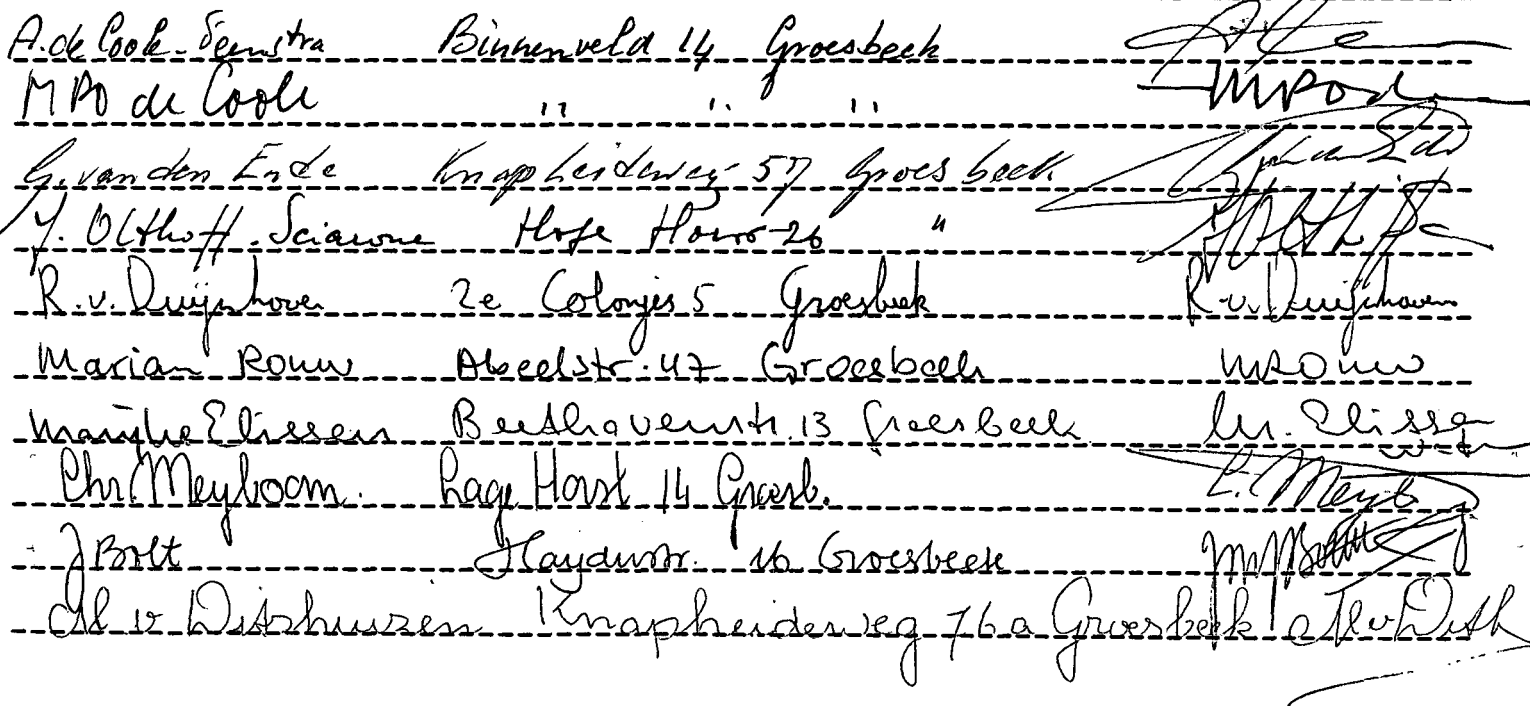 A. de Cook-Feenstra Binnenveld 14 Groesbeek
MPO de Cook " " "
G. van den Ende Knapheideweg 57 Groesbeek
J. Olthoff-Sciarone Hoge Horst 26 "
R. v. Duijnhoven 2e Colonjes 5 Groesbeek R. v. Duijnhoven
Marian Rouw Abeelstr. 47 Groesbeek MRouw
Marijke Elissen Beethovenstr. 13 Groesbeek M. Elissen
Chr. Meyboom. Lage Horst 14 Groesb. C. Meyb
J Bolt Haydnstr. 16 Groesbeek
M v Ditshuizen Knapheideweg 76a Groesbeek M v Dith